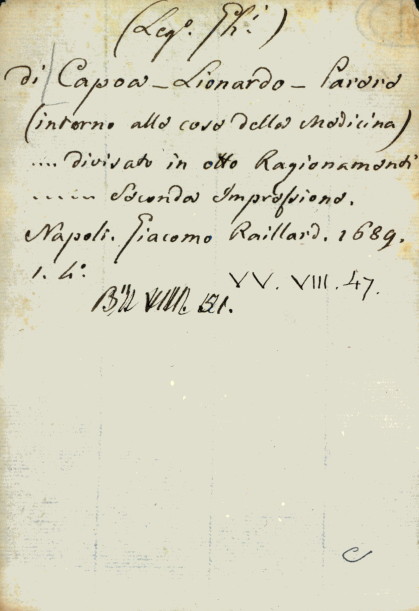 (Leg.º Ghi)
di Capoa - Lionardo - Parere
(intorno alle cose della Medicina)
.... divisato in otto Ragionamenti
...... Seconda Impressione.
Napoli. Giacomo Raillard. 1689.
1. 4.º
VV. VIII. 47.
C